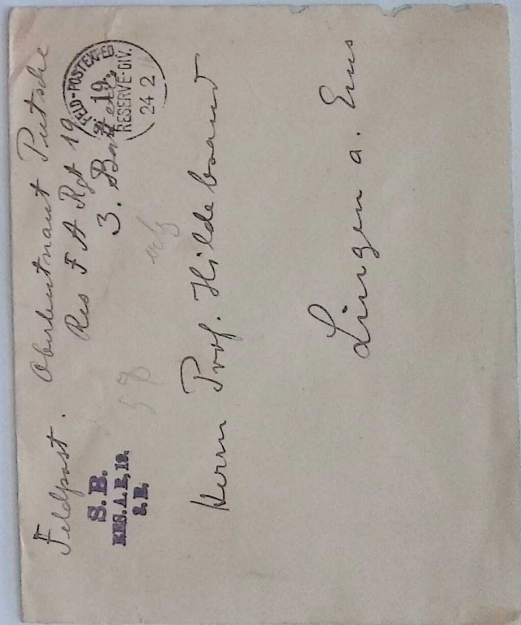 Feldpost. Oberleutnant Putsche
Res F A Rgt 19
3. Batterie
FELD-POSTEXPED.
19.
RESERVE-DIV.
24 2
S. B.
RES. A. R. 19.
3. B.
Herrn Prof. Hildebrand
Lingen a. Ems